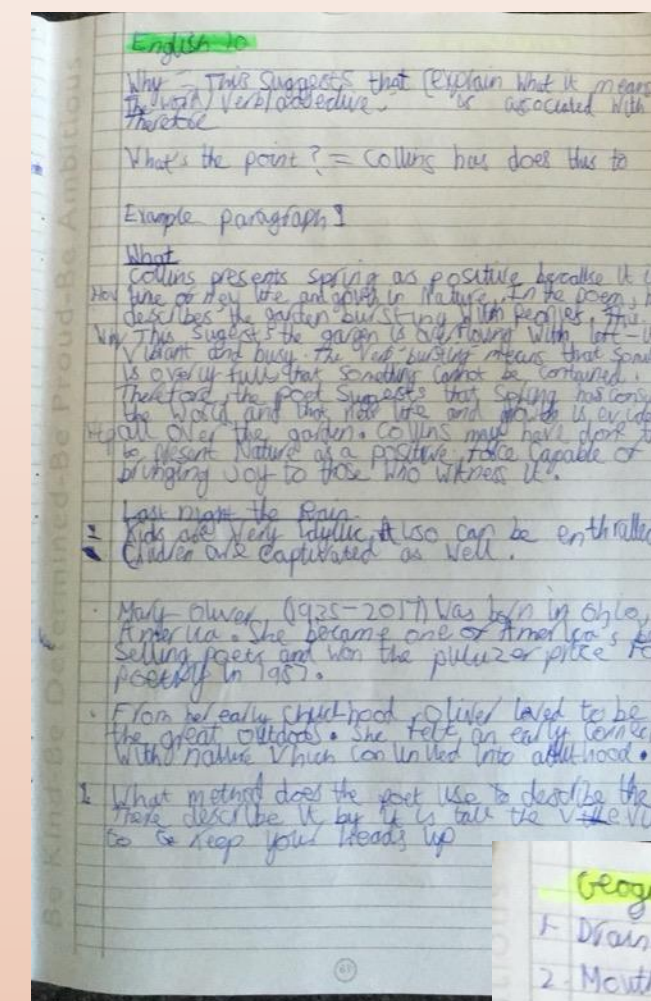 English 10
Why = This Suggests that (explain what it means
The word/verb/adjective. is associated with
Therefore
What's the point? = Collins has does this to
Example paragraph 1
What
Collins presents spring as positive because it
How time of new life and in Nature. In the poem,
describes the garden bursting with Peonies. This
Why This Sugests the garden is overflowing with
Vibrant and busy. The Verb bursting means that
is overly full that Something cannot be contained.
Therefore, the poet Suggests that Spring has
the World and that new life and growth is
all over the garden. Collins may have done
to present Nature as a positive force Capable of
bringing Joy to those who witness it.
Last night the Rain
2 Kids are very idyllic, Also can be enthralled
Children are Captivated as well.
Mary Oliver (1935-2017) was born in Ohio,
America. She became one of America's
Selling poets and won the price
poetry in 1987.
From her early Oliver loved to be
the great outdoors. She felt an early
With nature Which into adulthood.
1 What method does the poet use to describe the
There describe it by it is talk the
to keep your heads up
67
Be Kind-Be Determined-Be Proud-Be Ambitious
1 Drain
2 Mouth